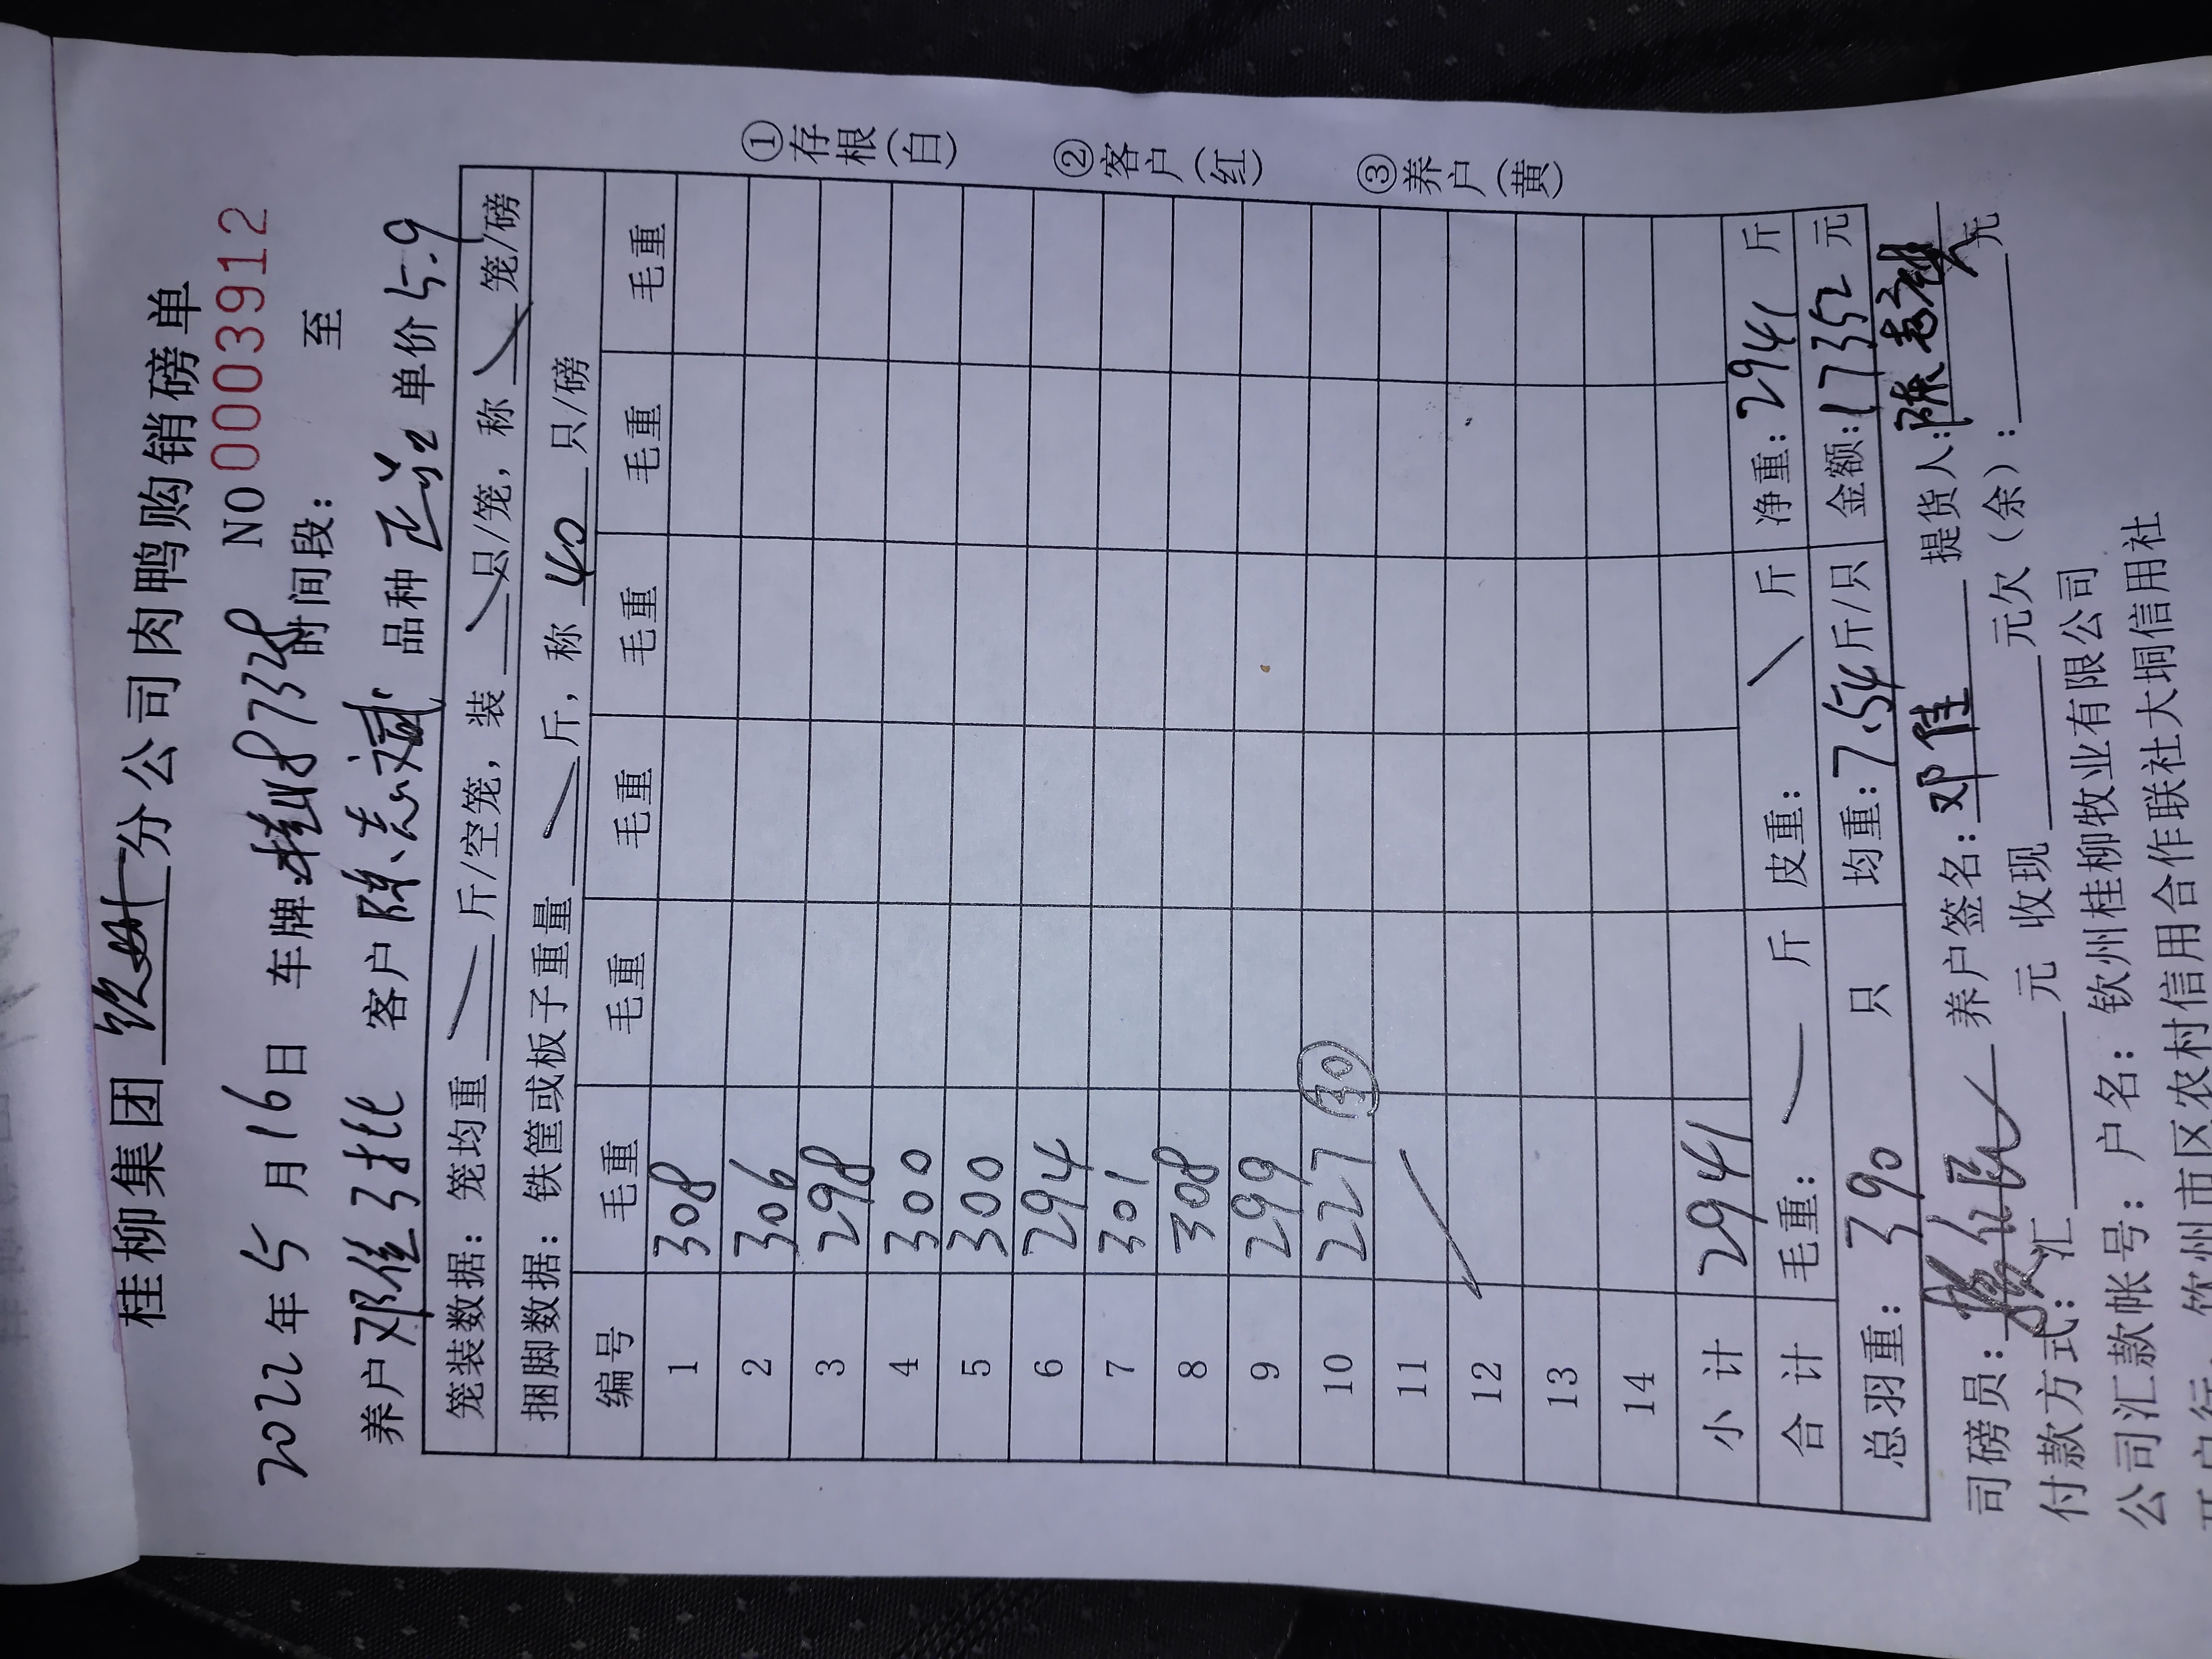 桂柳集团 钦州 分公司肉鸭购销磅单
2022年5月16日 车牌: 87328 NO 0003912
时间段: 至
养户 邓佳 3批 客户 陈志斌 品种 单价 5.9
笼装数据: 笼均重 / 斤/空笼, 装 / 只/笼, 称 / 笼/磅
捆脚数据: 铁筐或板子重量 / 斤, 称 40 只/磅
编号 毛重 毛重 毛重 毛重 毛重 毛重
1 308
2 306
3 298
4 300
5 300
6 294
7 301
8 308
9 299
10 227 30
11
12
13
14
小计 2941
合计 毛重: / 斤 皮重: / 斤 净重: 2941 斤
总羽重: 390 只 均重: 7.54 斤/只 金额: 17352 元
司磅员: 养户签名: 邓佳 提货人: 陈志斌
付款方式: 汇 元 收现 元欠(余): 元
公司汇款帐号: 户名: 钦州桂柳牧业有限公司
开户行: 钦州市区农村信用合作联社大垌信用社
①存根(白)
②客户(红)
③养户(黄)